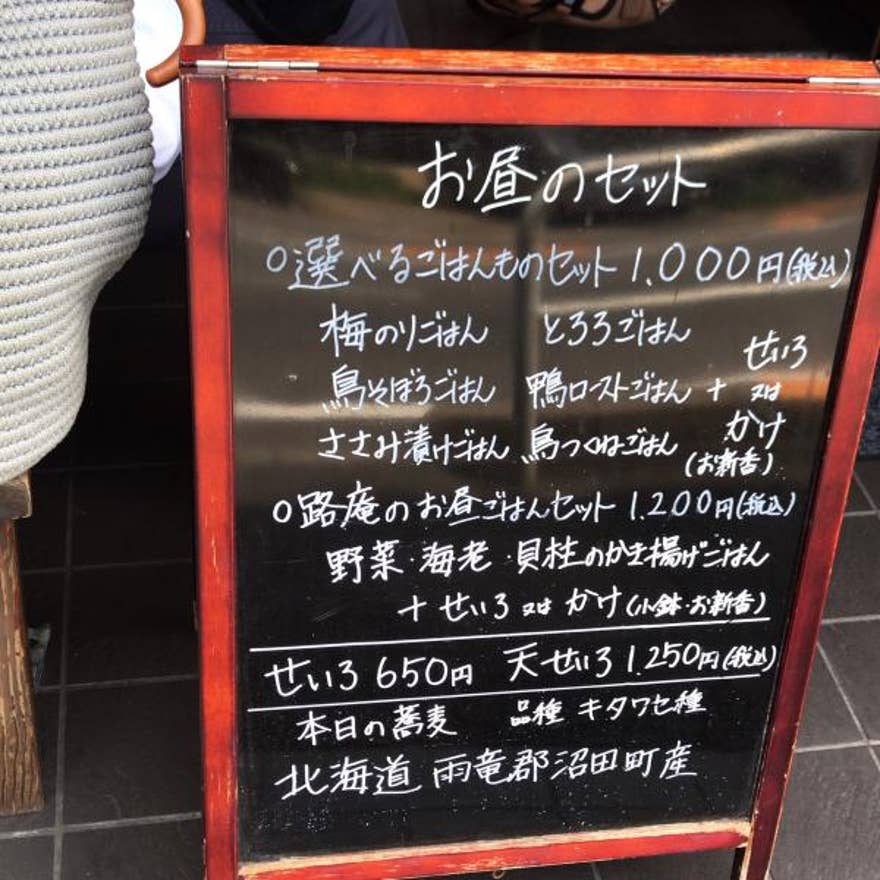 お昼のセット
○選べるごはんものセット 1.000円(税込)
梅のりごはん とろろごはん
鳥そぼろごはん 鴨ローストごはん + せいろ 又は かけ
ささみ漬けごはん 鳥つくねごはん (お新香)
○路庵のお昼ごはんセット 1.200円(税込)
野菜・海老・貝柱のかき揚げごはん
+ せいろ 又は かけ (小鉢・お新香)
せいろ 650円 天せいろ 1.250円(税込)
本日の蕎麦 品種 キタワセ種
北海道 雨竜郡沼田町産